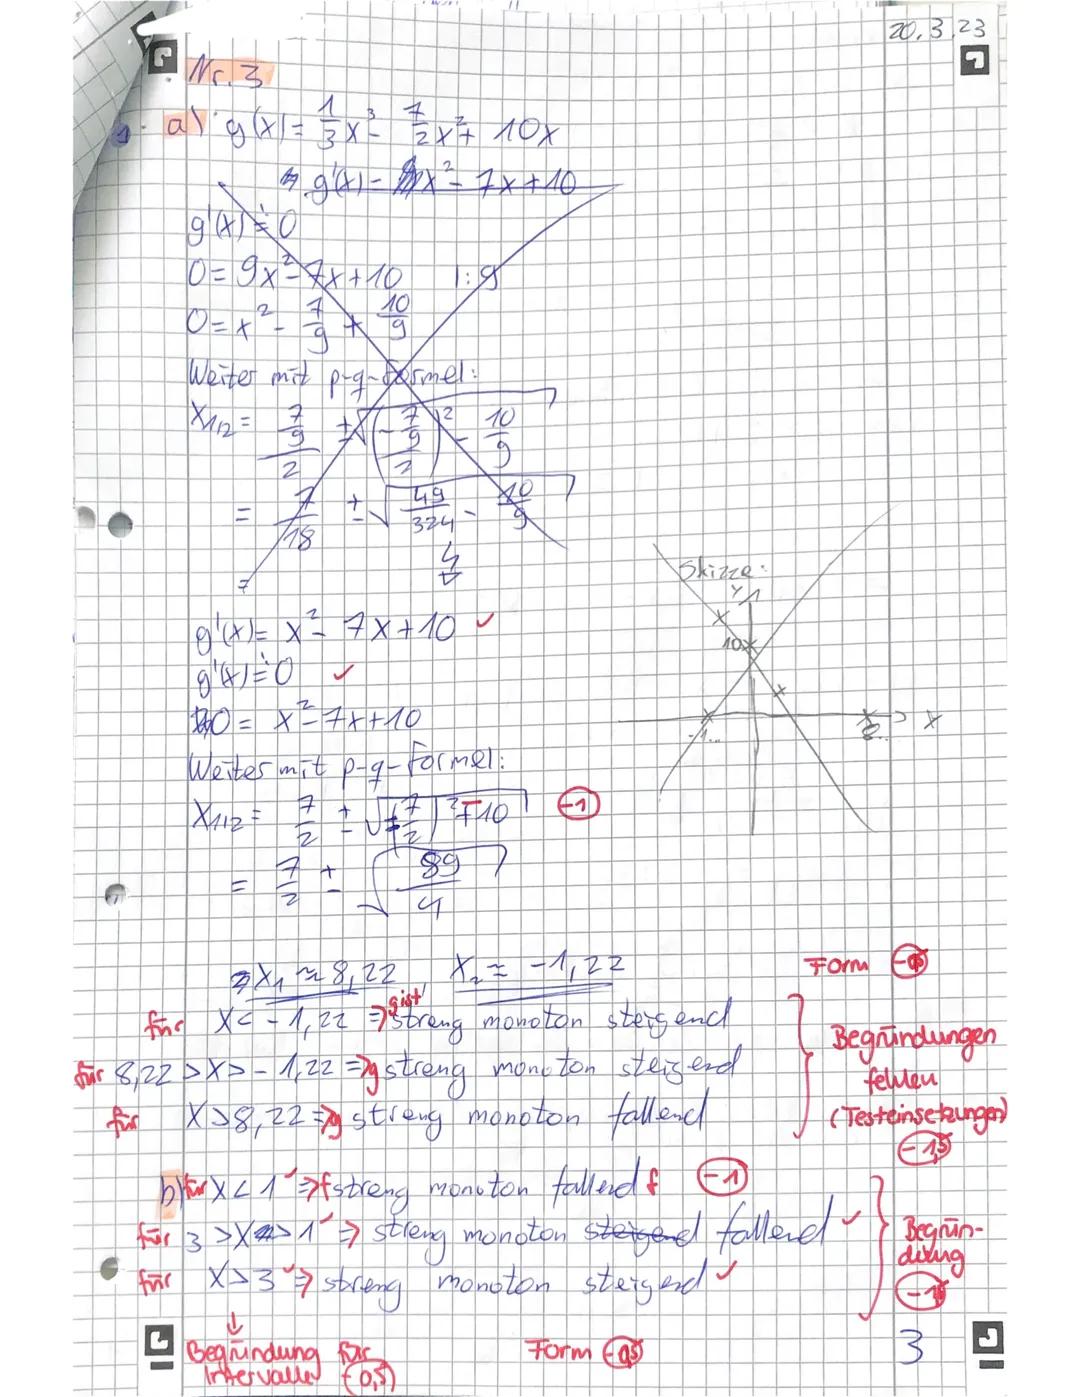 20.3.23
Nr. 3
a) g(x) = 1/3 x³ - 7/2 x² + 10x
g'(x) = x² - 7x + 10
g'(x) = 0
0 = 9x² - 7x + 10 |: 9
0 = x² - 7/9 + 10/9
Weiter mit p-q-Formel:
X₁,₂ = (7/9)/2 ± √((-(7/9)/2)² - 10/9)
= 7/18 ± √(49/324 - 10/9)
=
Skizze:
Y
10
-1...
8...
X
g'(x) = x² - 7x + 10 ✓
g'(x) = 0 ✓
0 = x² - 7x + 10
Weiter mit p-q-Formel:
X₁,₂ = 7/2 ± √((7/2)² - 10) -1
= 7/2 ± √(89/4)
=> X₁ ≈ 8,22 X₂ ≈ -1,22
Form
für X < -1,22 => g ist streng monoton steigend
für 8,22 > X > -1,22 => g streng monoton steigend
für X > 8,22 => g streng monoton fallend
Begründungen
fehlen
(Testeinsetzungen)
-1,5
b) für X < 1 ✓ => f streng monoton fallend f -1
für 3 > X > 1 ✓ => streng monoton steigend fallend ✓
für X > 3 ✓ => streng monoton steigend ✓
Begrün-
dung
↓
Begründung für
Intervalle -0,5
Form -0,5
3